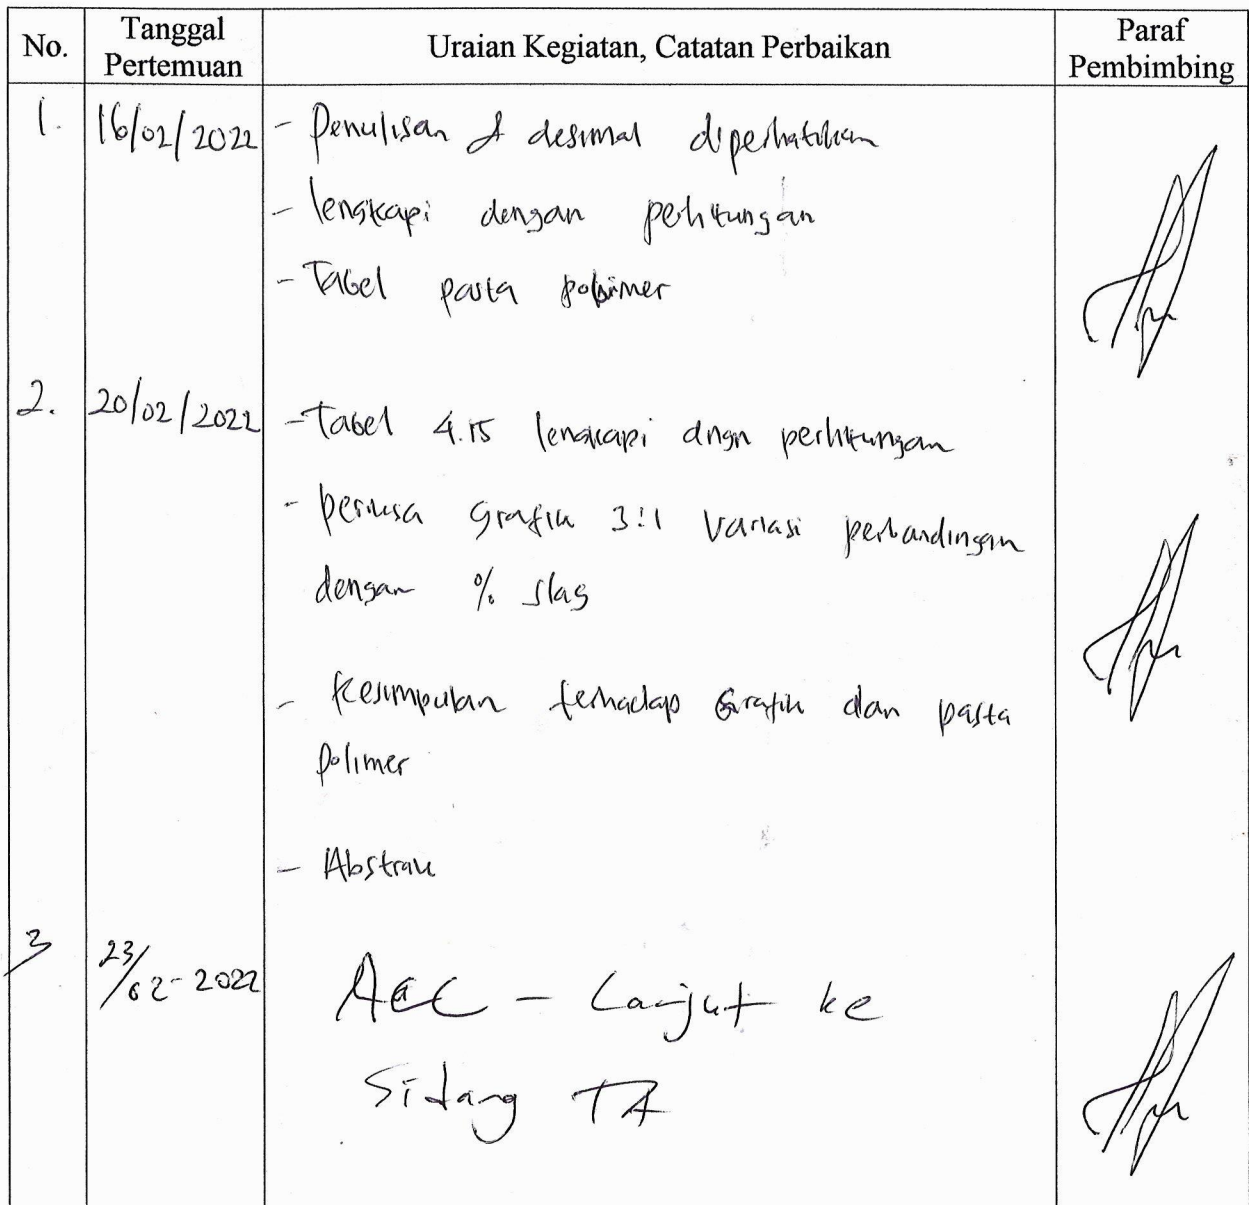 No.
Tanggal
Pertemuan
Uraian Kegiatan, Catatan Perbaikan
Paraf
Pembimbing
1.
16/02/2022
- Penulisan & desimal diperhatikan
- lengkapi dengan perhitungan
- Tabel pasta polimer
2.
20/02/2022
- Tabel 4.15 lengkapi dngn perhitungan
- periksa Grafik 3:1 Variasi perbandingan
dengan % slag
- Kesimpulan terhadap Grafik dan pasta
polimer
- Abstrak
3
23/02-2022
Acc - Lanjut ke
Sidang TA